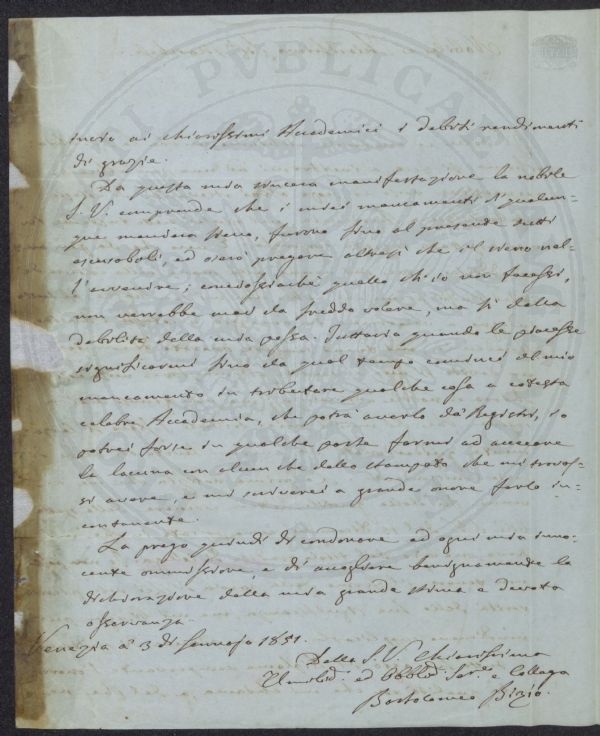 ai chiarissimi Accademici i debiti rendimenti
di grazie.
Da questa mia sincera manifestazione la nobile
S. V. comprende che i miei mancamenti di qualun-
que maniera sieno, furono sino al presente tutti
escusabili, ed osero pregare altresì che il sieno nel-
l'avvenire; conciossiachè quello ch'io non facessi,
non verrebbe mai da freddo volere, ma sì dalla
debolezza della mia possa. Tuttavia quando le piacesse
significarmi sino da qual tempo cominci il mio
mancamento in tributare qualche cosa a cotesta
celebre Accademia, che potrà averlo da' Registri, io
potrei forse in qualche parte farmi ad
la lacuna con alcun che dello stampato che mi trovas-
si avere, e mi scriverei a grande onore farlo in-
contanente.
La prego quindi di condonare ad ogni mia inno-
cente ommissione, e di accogliere benignamente la
dichiarazione della mia grande stima e devota
osservanza.
Venezia a' 3 di Gennajo 1851.
Della S. V. Chiarissima
Umiliss. ed Obbl. Ser. e Collega
Bartolomeo Bizio.